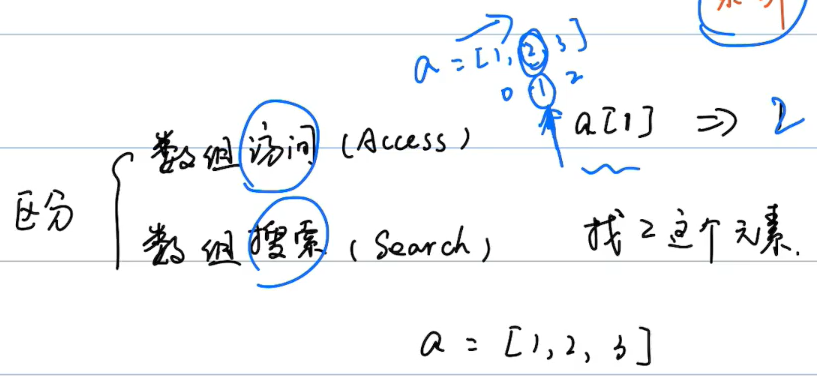 a = [1, 2, 3]
0 1 2
数组访问 (Access)
a[1] ⇒ 2
区分
数组搜索 (Search)
找2这个元素.
a = [1, 2, 3]